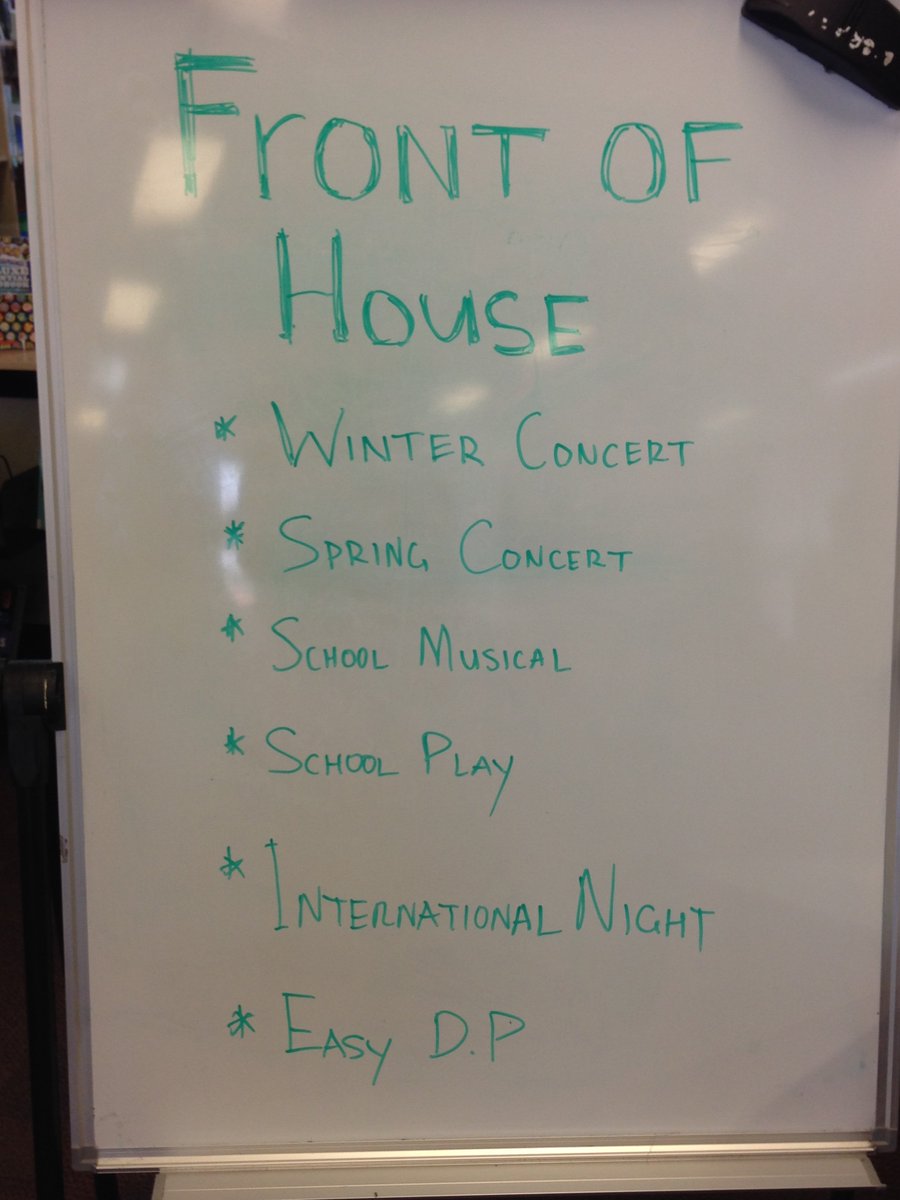 FRONT OF
HOUSE
* WINTER CONCERT
* SPRING CONCERT
* SCHOOL MUSICAL
* SCHOOL PLAY
* INTERNATIONAL NIGHT
* EASY D.P